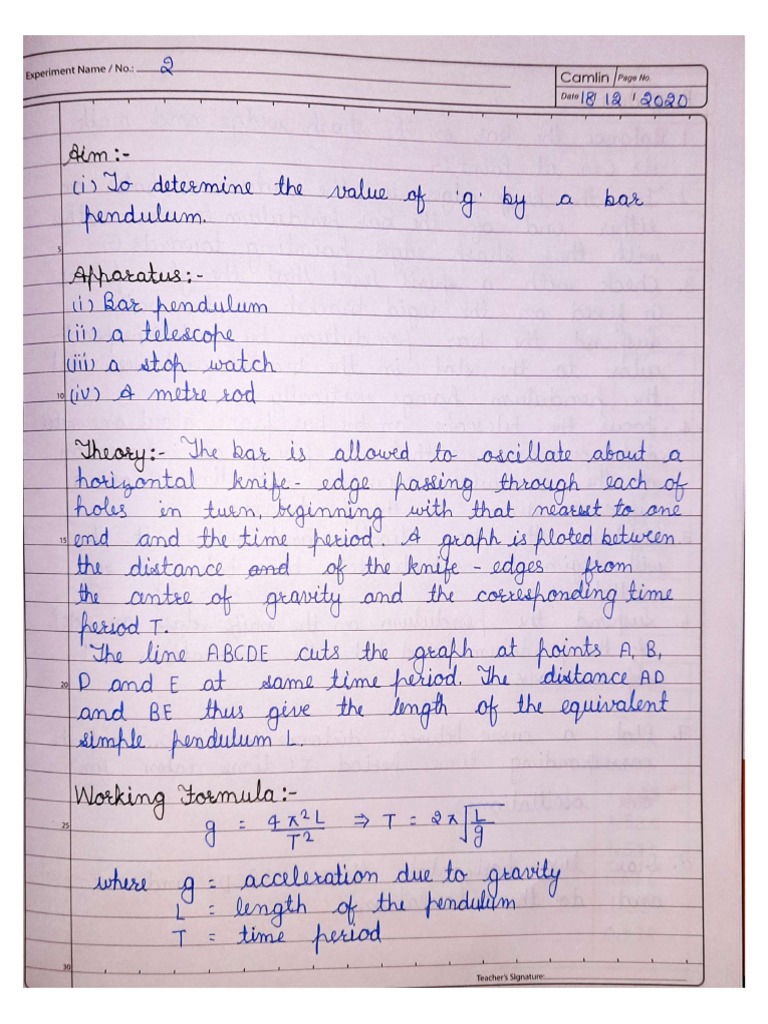 Experiment Name / No.: 2
Camlin Page No.
Date 18 12 2020
Aim:-
(i) To determine the value of 'g' by a bar
pendulum.
5
Apparatus:-
(i) Bar pendulum
(ii) a telescope
(iii) a stop watch
10 (iv) A metre rod
Theory:- The bar is allowed to oscillate about a
horizontal knife-edge passing through each of
holes in turn, beginning with that nearest to one
15 end and the time period. A graph is ploted between
the distance and of the knife-edges from
the centre of gravity and the corresponding time
period T.
The line ABCDE cuts the graph at points A, B,
20 D and E at same time period. The distance AD
and BE thus give the length of the equivalent
simple pendulum L.
Working Formula:-
25 g = 4π²L/T² ⇒ T = 2π√(L/g)
where g = acceleration due to gravity
L = length of the pendulum
T = time period
30
Teacher's Signature: